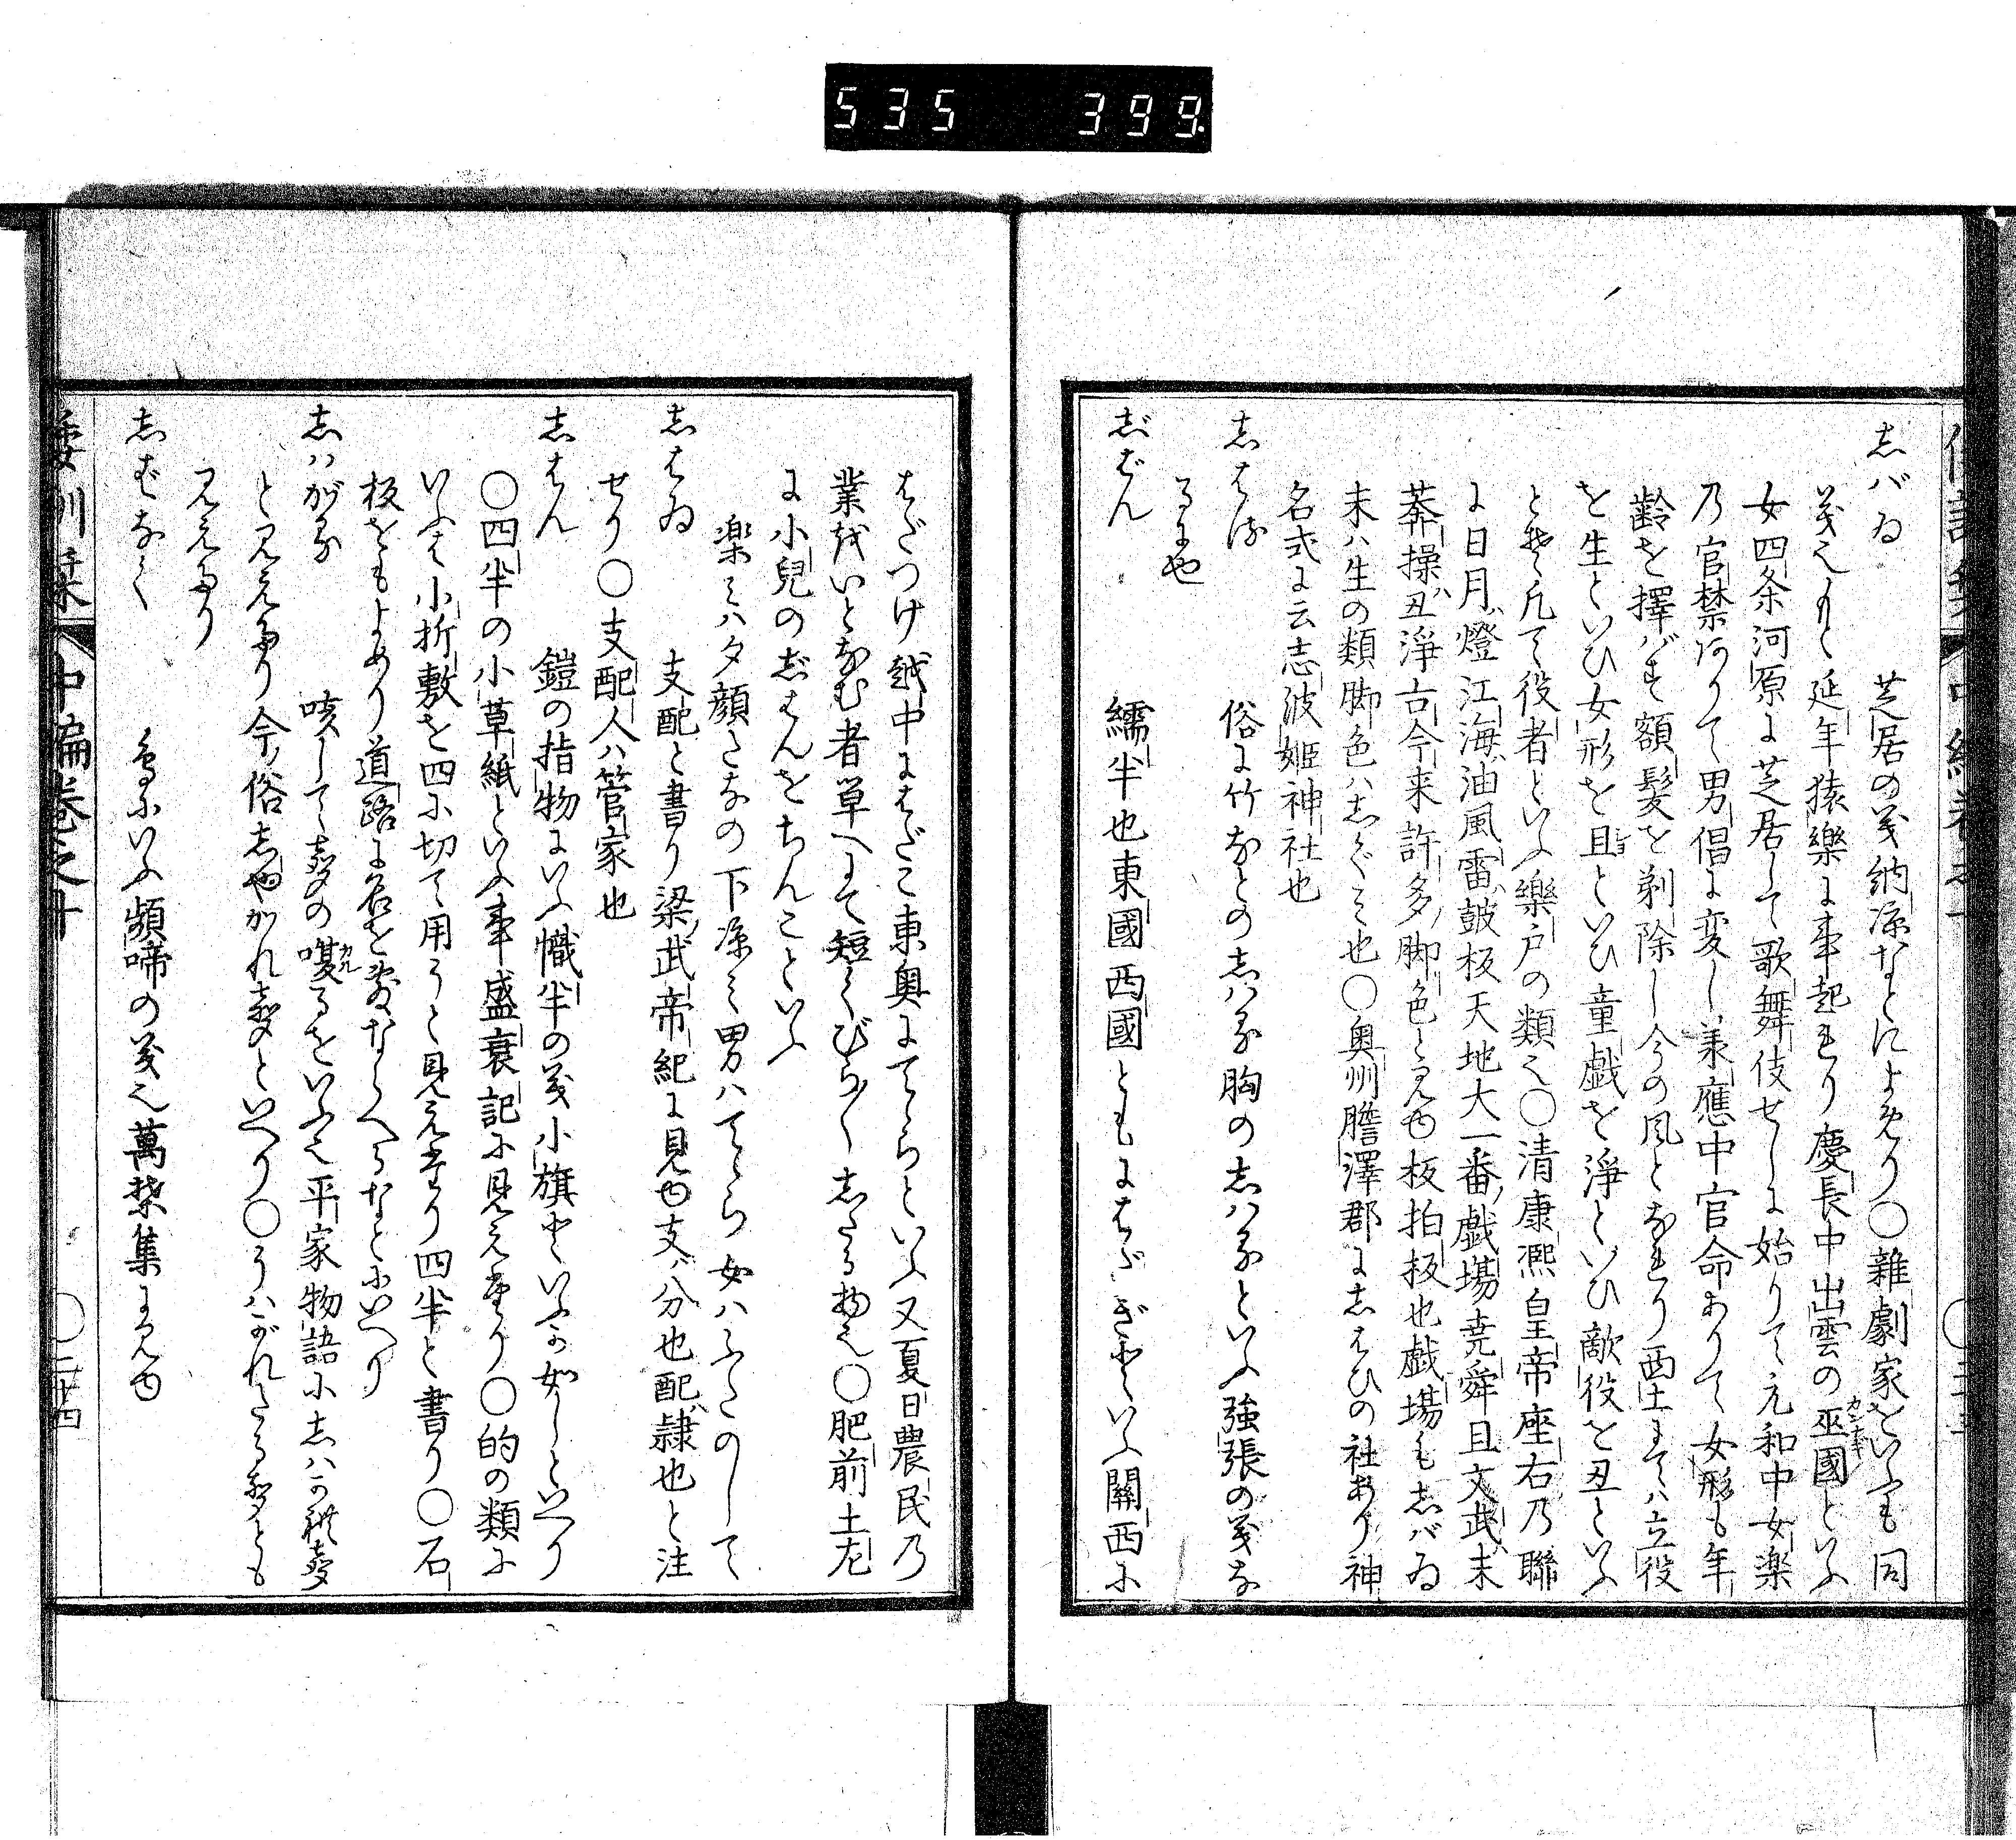 535 399
志バゐ 芝居の義納凉なとによめり〇雜劇家をいふも同
義也もと延年猿樂に事起れり慶長中出雲の巫國といふ
女四条河原に芝居して歌舞伎せしに始りて元和中女楽
乃官禁ありて男倡に変し兼應中官命ありて女形も年
齡を擇バず額髪を剃除し今の風となれり西土にてハ立役
を生といひ女形を且といひ童戯を淨といひ敵役を丑といふ
とそ凡て役者といふハ樂戸の類也〇清康凞皇帝座右乃聯
に日月ハ燈江海ハ油風雷ハ皷板天地大一番ノ戯塲尭舜且文武ハ末
莽操ハ丑淨古今来許多ノ脚色と見ゆ板拍扳也戯塲も志バゐ
末ハ生の類脚色ハ志ぐミ也〇奥州膽澤郡に志はひの社あり神
名式に云志波姫神社也
志はる 俗に竹なとの志ハる胸の志ハるといふ強張の義な
るにや
志゛ばん 繻半也東國西國ともにはだぎといふ關西に
はだつけ越中にはだこ東奥にてらといふ又夏日農民乃
業をいとなむ者単へにて短くびらびら志たる物也〇肥前土左
に小兒の志゛はんをちんこといふ
楽ミハ夕顔たなの下凉ミ男ハてゝら女ハふたのして
志はゐ 支配と書り梁武帝紀に見ゆ支ハ分也配ハ隷也と注
せり〇支配人ハ管家也
志はん 鎧の指物にいふ幟半の義小旗といふか如しといへり
〇四半の小草紙といふ事盛衰記に見えたり〇的の類に
いふは小折敷を四に切て用うと見えたり四半と書り〇石
板をもよめり道路に石を敷ならへるなとにいへり
志ハがる 咳して聲の嗄るをいふ也平家物語に志ハか禮聲
と見えたり今ノ俗志やがれ聲といへり〇うハがれたる聲とも
見えたり
志ばなく 鳥にいふ頻啼の義也萬葉集に見ゆ
倭訓栞 中編巻之十 〇二十四